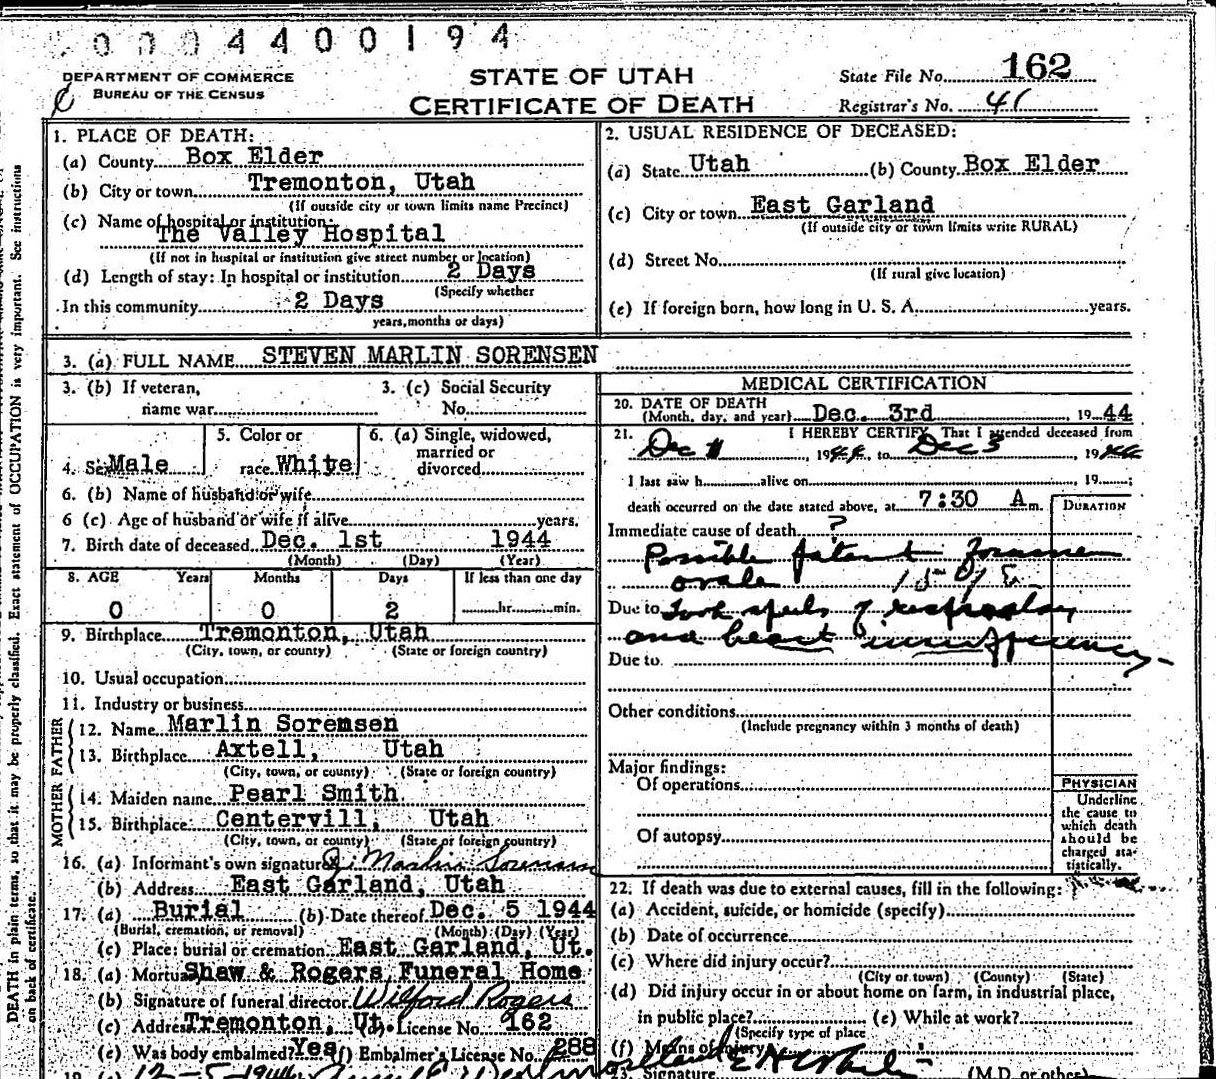 0004400194
DEPARTMENT OF COMMERCE
BUREAU OF THE CENSUS
STATE OF UTAH
CERTIFICATE OF DEATH
State File No. 162
Registrar's No. 41
1. PLACE OF DEATH:
(a) County Box Elder
(b) City or town Tremonton, Utah
(If outside city or town limits name Precinct)
(c) Name of hospital or institution:
The Valley Hospital
(If not in hospital or institution give street number or location)
(d) Length of stay: In hospital or institution 2 Days
(Specify whether
In this community 2 Days
years, months or days)
2. USUAL RESIDENCE OF DECEASED:
(a) State Utah (b) County Box Elder
(c) City or town East Garland
(If outside city or town limits write RURAL)
(d) Street No.
(If rural give location)
(e) If foreign born, how long in U. S. A. years.
3. (a) FULL NAME STEVEN MARLIN SORENSEN
3. (b) If veteran, name war
3. (c) Social Security No.
4. Sex Male
5. Color or race White
6. (a) Single, widowed, married or divorced
6. (b) Name of husband or wife
6 (c) Age of husband or wife if alive years.
7. Birth date of deceased Dec. 1st 1944
(Month) (Day) (Year)
8. AGE Years Months Days If less than one day
0 0 2 hr. min.
9. Birthplace Tremonton, Utah
(City, town, or county) (State or foreign country)
10. Usual occupation
11. Industry or business
FATHER
12. Name Marlin Soremsen
13. Birthplace Axtell, Utah
(City, town, or county) (State or foreign country)
MOTHER
14. Maiden name Pearl Smith
15. Birthplace Centervill, Utah
(City, town, or county) (State or foreign country)
16. (a) Informant's own signature J. Marlin Sorensen
(b) Address East Garland, Utah
17. (a) Burial (b) Date thereof Dec. 5 1944
(Burial, cremation, or removal) (Month) (Day) (Year)
(c) Place: burial or cremation East Garland, Ut.
18. (a) Mortuary Shaw & Rogers Funeral Home
(b) Signature of funeral director Wilford Rogers
(c) Address Tremonton, Ut. License No. 162
(e) Was body embalmed? Yes (f) Embalmer's License No. 288
19. (a) 12-5-1944
MEDICAL CERTIFICATION
20. DATE OF DEATH
(Month, day, and year) Dec. 3rd 1944
21. I HEREBY CERTIFY, That I attended deceased from
Dec 1, 1944, to Dec 3, 1944
I last saw h alive on 19 ;
death occurred on the date stated above, at 7:30 A m.
DURATION
Immediate cause of death ?
Possible patent foramen
ovale
Due to Took spells of respiratory
and heart insufficiency
Due to
Other conditions
(Include pregnancy within 3 months of death)
Major findings:
Of operations
Of autopsy
PHYSICIAN
Underline
the cause to
which death
should be
charged sta-
tistically.
22. If death was due to external causes, fill in the following:
(a) Accident, suicide, or homicide (specify)
(b) Date of occurrence
(c) Where did injury occur?
(City or town) (County) (State)
(d) Did injury occur in or about home on farm, in industrial place,
in public place? (e) While at work?
(Specify type of place
(f) Means of injury
23. Signature (M.D. or other)
DEATH in plain terms, so that it may be properly classified. Exact statement of OCCUPATION is very important. See instructions
on back of certificate.